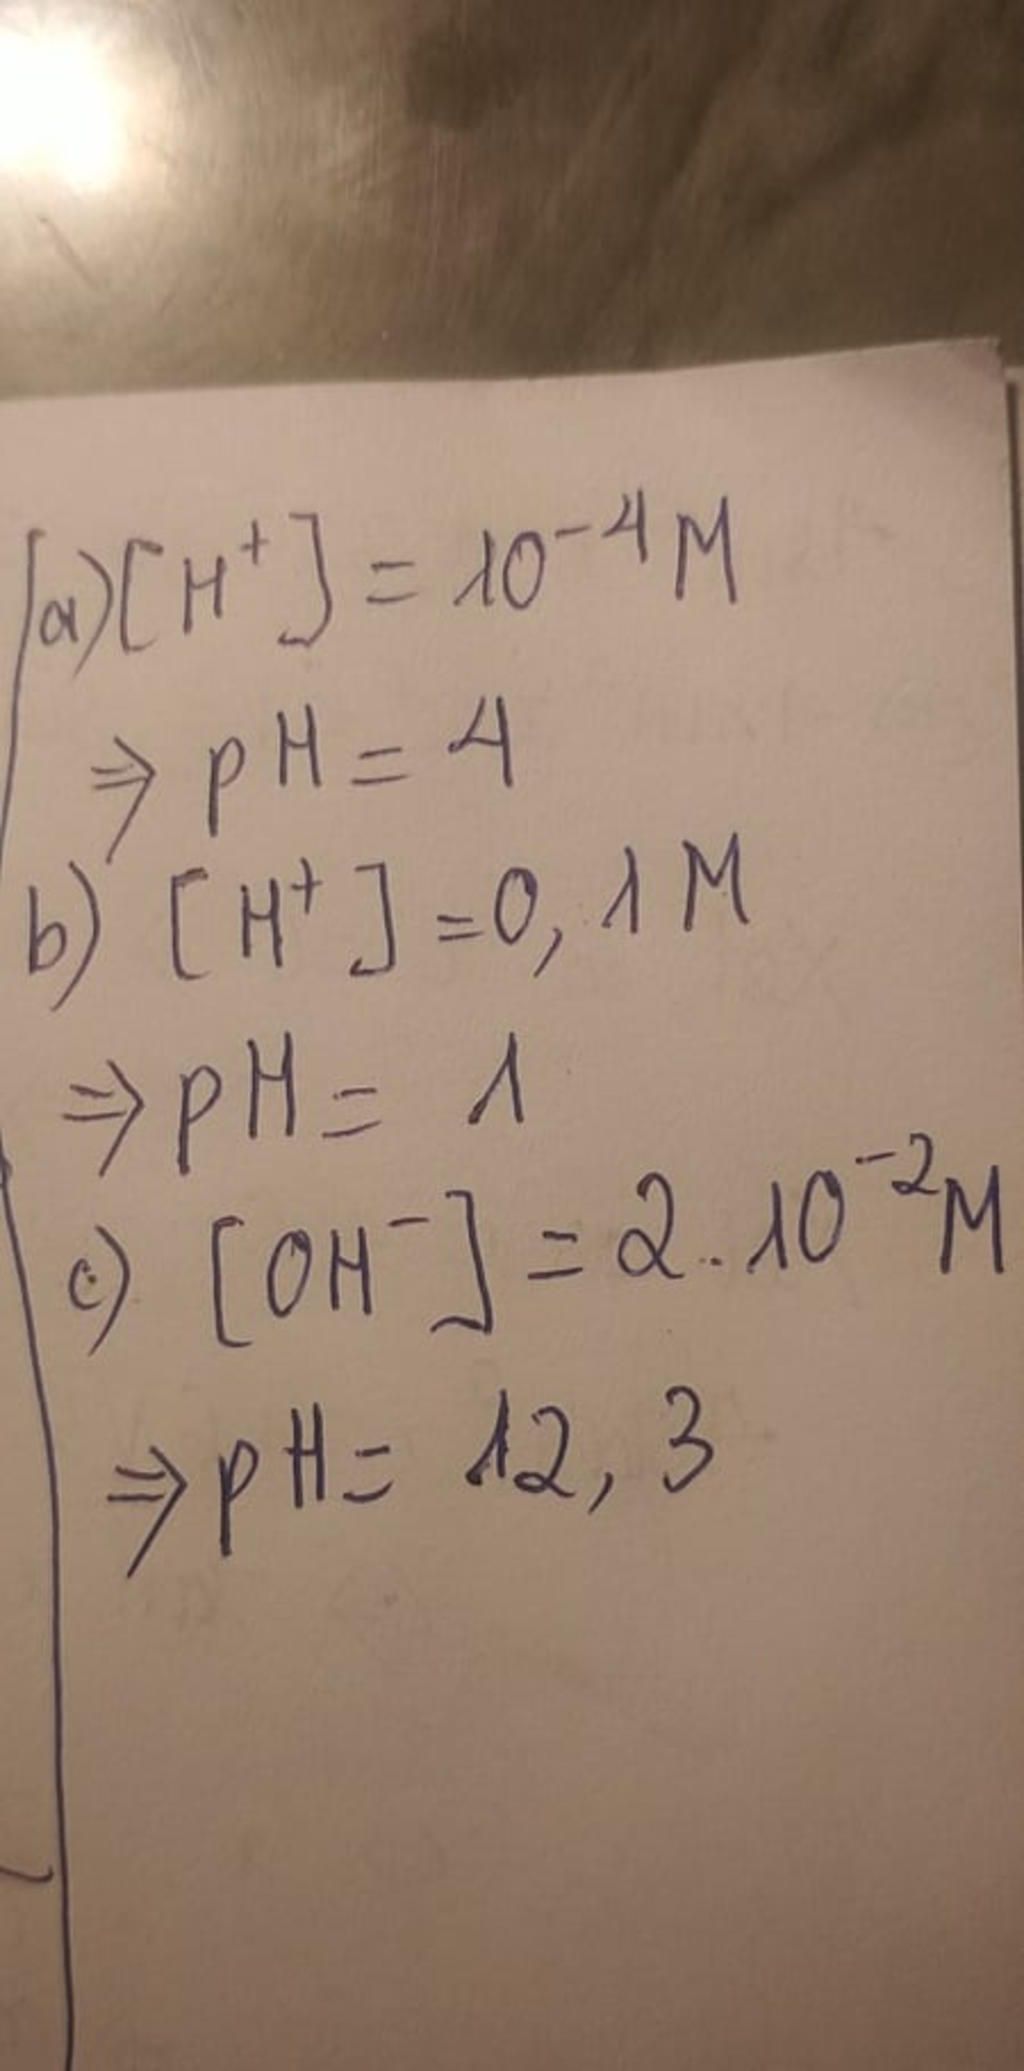 a) [H⁺] = 10⁻⁴ M
⇒ pH = 4
b) [H⁺] = 0,1 M
⇒ pH = 1
c) [OH⁻] = 2.10⁻² M
⇒ pH = 12,3